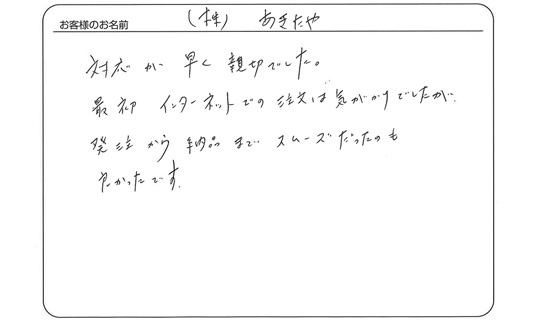 お客様のお名前 (株) あきたや
対応が 早く 親切でした。
最初 インターネットでの 注文は 気がかりでしたが、
発注から 納品まで スムーズだったのも
良かったです。